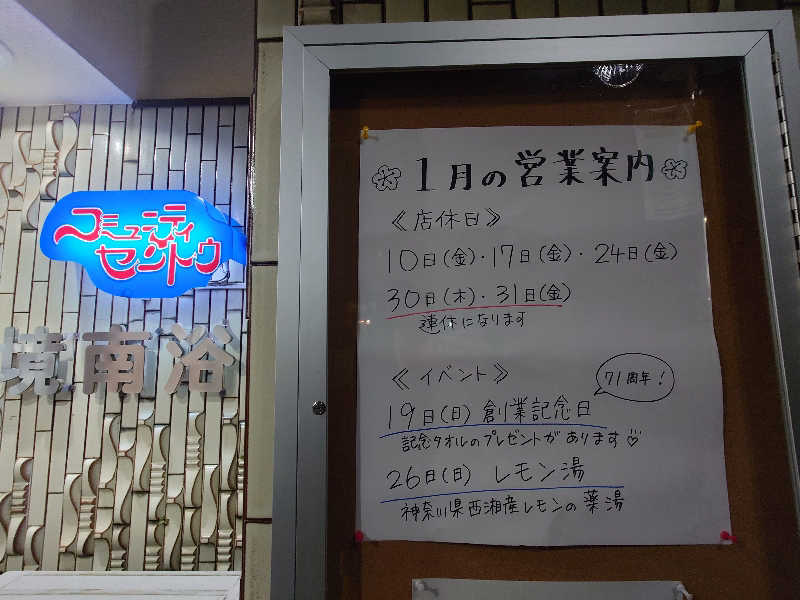 コミュニティ
セントウ
境南浴
1月の営業案内
《店休日》
10日(金)・17日(金)・24日(金)
30日(木)・31日(金)
連休になります
《イベント》
71周年!
19日(日) 創業記念日
記念タオルのプレゼントがあります♡
26日(日) レモン湯
神奈川県西湘産レモンの薬湯